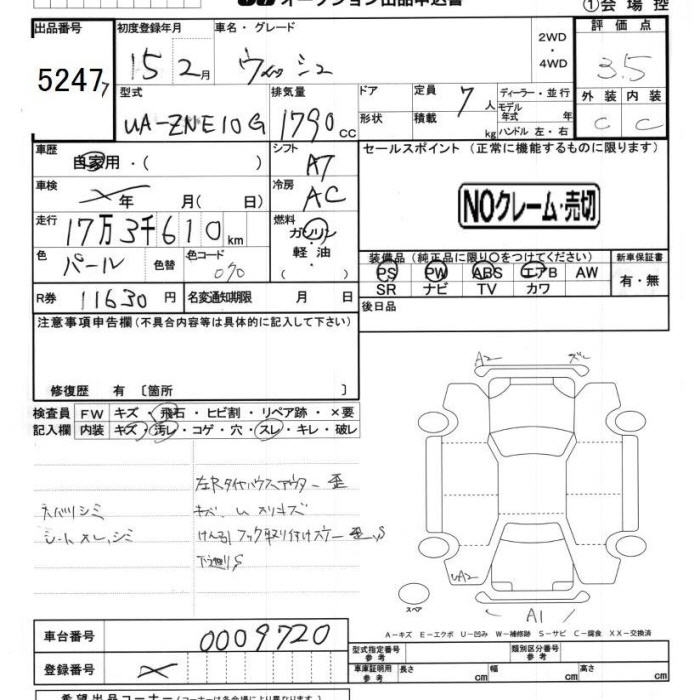 オークション出品申込書
①会場控
出品番号
5247
初度登録年月
15 2月
車名・グレード
ウィッシュ
2WD
・
4WD
評価点
3.5
外装 内装
C C
型式
UA-ZNE10G
排気量
1790 cc
ドア
形状
定員 7人
積載 kg
ディーラー・並行
モデル年式 年
ハンドル 左・右
車歴
自家用・( )
シフト
AT
セールスポイント(正常に機能するものに限ります)
NOクレーム・売切
車検
年 月( 日)
冷房
AC
走行
17万3千610km
燃料
ガソリン
軽油
・( )
色
パール
色替
色コード
070
装備品(純正品に限り○をつけてください)
新車保証書
PS PW ABS エアB AW
SR ナビ TV カワ
有・無
R券 11630円
名変通知期限 月 日
後日品
注意事項申告欄(不具合内容等は具体的に記入して下さい)
修復歴 有 〔箇所 〕
検査員 FW キズ・飛石・ヒビ割・リペア跡・×要
記入欄 内装 キズ・汚レ・コゲ・穴・スレ・キレ・破レ
A2 ズレ
左Rタイヤハウスアウター歪
ネバリシミ
シートヨレ、シミ
けん引フック取り付けステー歪、S
下廻りS
UA2
スペア
A1
A-キズ E-エクボ U-凹み W-補修跡 S-サビ C-腐食 XX-交換済
車台番号
0009720
型式指定番号
参考
類別区分番号
参考
登録番号
車庫証明用
参考
長さ cm 幅 cm 高さ cm
希望出品コーナー(コーナーは各会場により異なります)